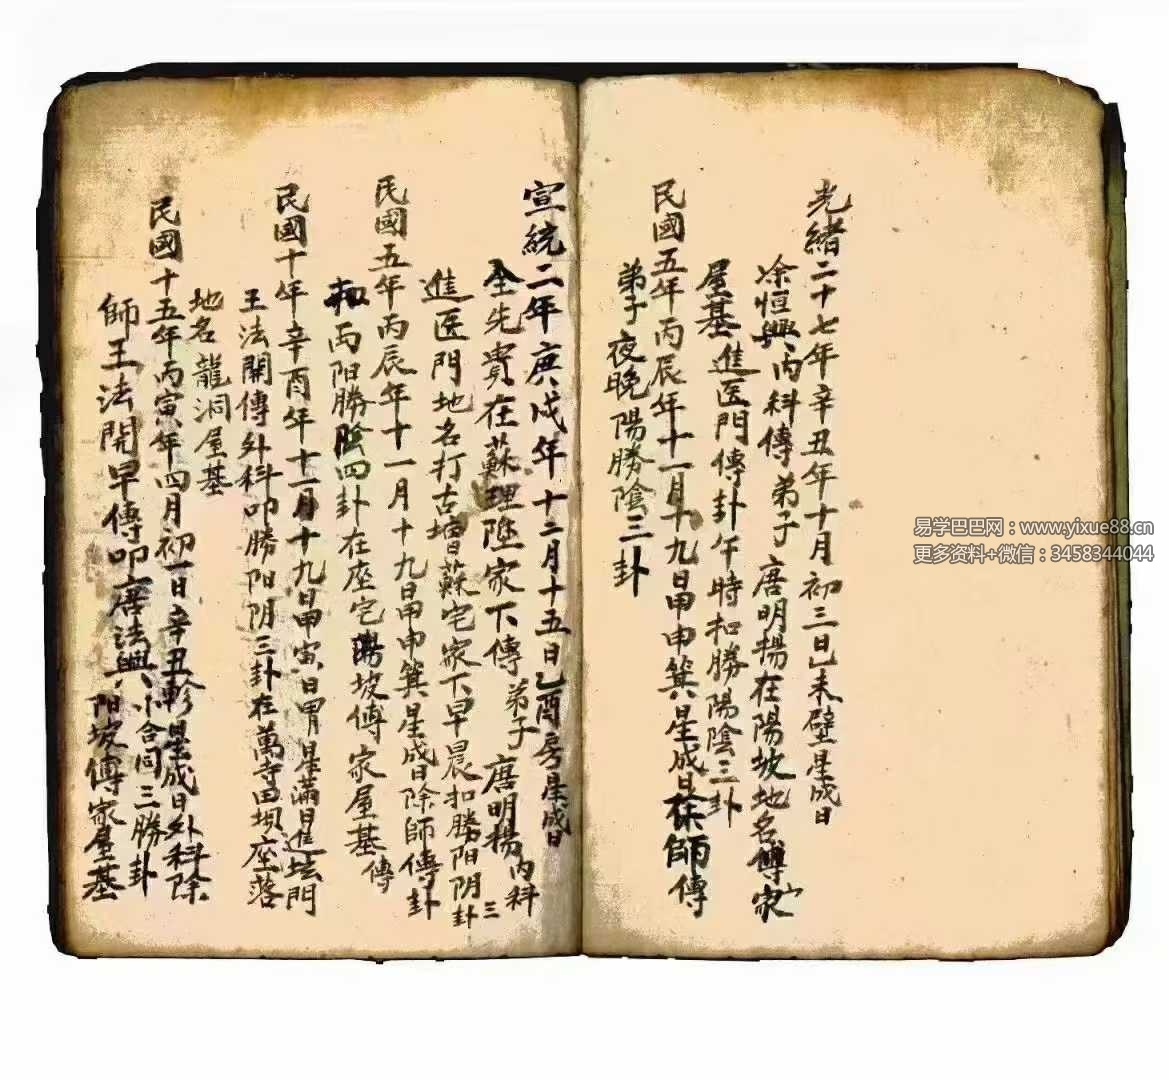 光緒二十七年辛丑年十月初三日己未壁星成日
涂恒興、内科傳弟子唐明揚在陽坡地名傅家
屋基進医門傳卦午時扣勝陽陰三卦
民國五年丙辰年十一月十九日甲申箕星成日涂師傳
弟子夜晚陽勝陰三卦
宣統二年庚戌年十二月十五日乙酉房星成日
全先貴在蘇理陞家下傳弟子唐明揚内科
進医門地名打古塘蘇宅家下早晨扣勝阳阴三卦
民國五年丙辰年十一月十九日甲申箕星成日除師傳卦
扣丙阳勝陰四卦在座宅陽坡傅家屋基傳
民國十年辛酉年十一月十九日甲寅日胃星滿日進坛門
王法開傳外科叩勝阳阴三卦在萬寺田垻座落
地名龍洞屋基
民國十五年丙寅年四月初一日辛丑軫星成日外科除
師王法開早傳叩唐法興、小合同三勝卦
阳坡傅家屋基
易学巴巴网：www.yixue88.cn
更多资料+微信：3458344044